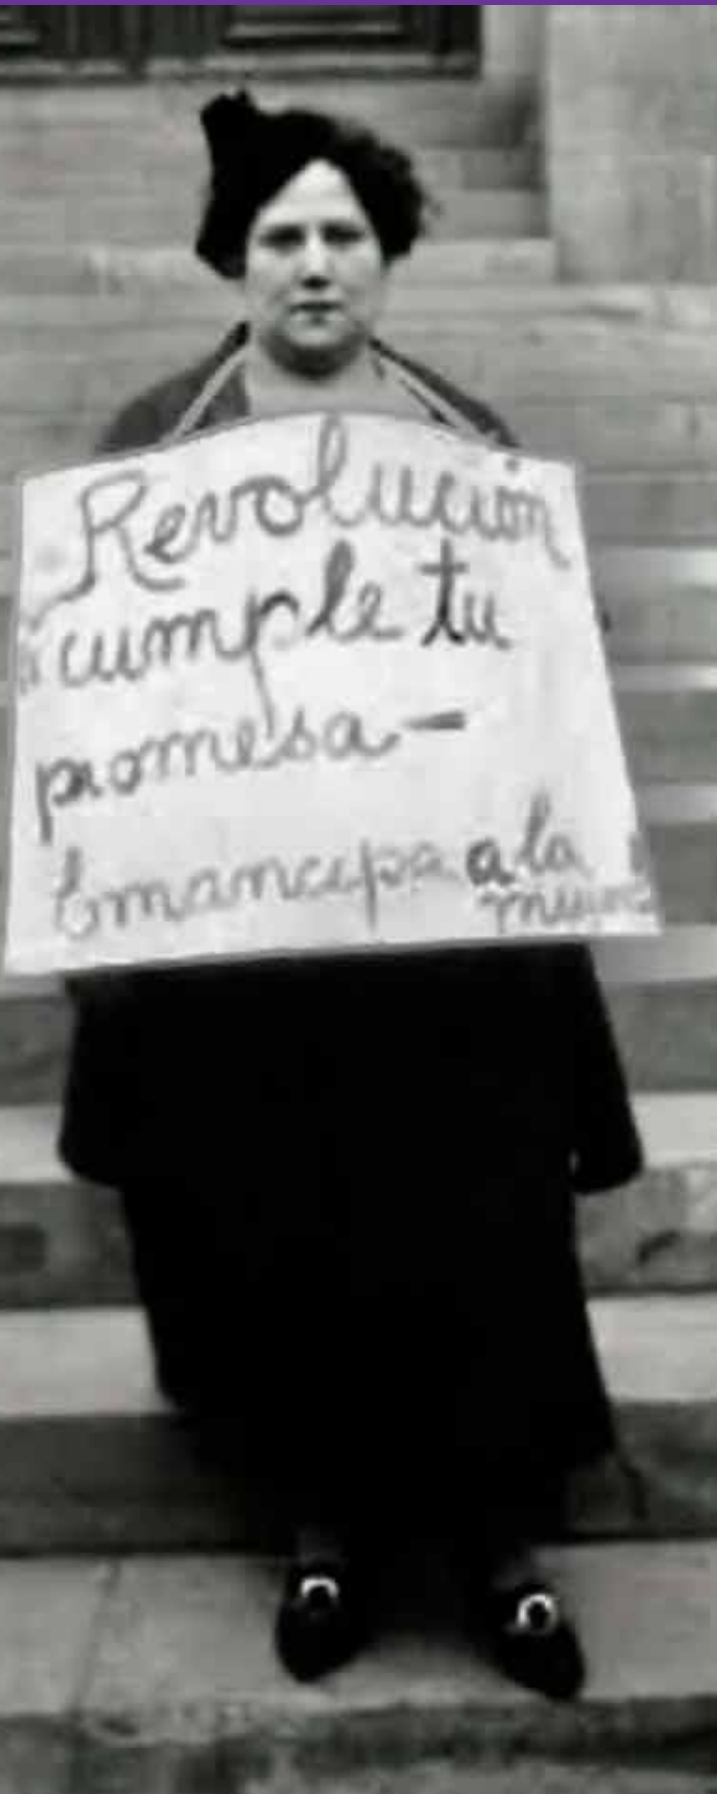 Revolución
cumple tu
promesa—
Emancipa a la